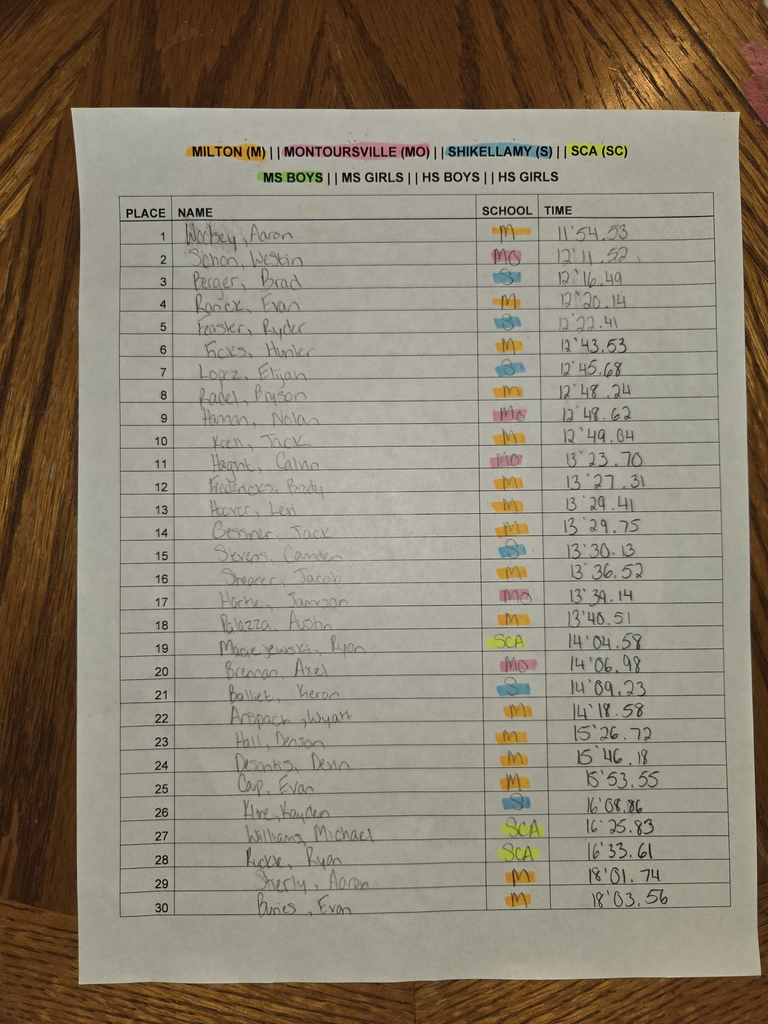 MILTON (M) || MONTOURSVILLE (MO) || SHIKELLAMY (S) || SCA (SC)
MS BOYS || MS GIRLS || HS BOYS || HS GIRLS
PLACE NAME SCHOOL TIME
1 Aaron M 11'54.53
2 Schon, Westin MO 12'11.52
3 Berger, Brad S 12'16.49
4 Ranck, Evan M 12'20.14
5 Feaster, Ryder S 12'22.41
6 Hunter M 12'43.53
7 Lopez, Elijah S 12'45.68
8 Radel, Bryson M 12'48.24
9 Nolan Mo 12'48.62
10 Krell, Jack M 12'49.04
11 MO 13'23.70
12 Fredericks, Brody M 13'27.31
13 Hoover, Levi M 13'29.41
14 Gessner, Jack M 13'29.75
15 Stevens, Camden S 13'30.13
16 Shearer, Jacob M 13'36.52
17 MO 13'39.14
18 Palazza, Austin M 13'40.51
19 Maciejewski, Ryan SCA 14'04.58
20 Brennan, Axel MO 14'06.98
21 Balliet, Kieran S 14'09.23
22 Anspach, Wyatt M 14'18.58
23 Hall, Denson M 15'26.72
24 Desantis, Devin M 15'46.18
25 Cap, Evan M 15'53.55
26 Kline, Kayden S 16'08.86
27 Williams, Michael SCA 16'25.83
28 Ryan SCA 16'33.61
29 Sherly, Aaron M 18'01.74
30 Evan M 18'03.56